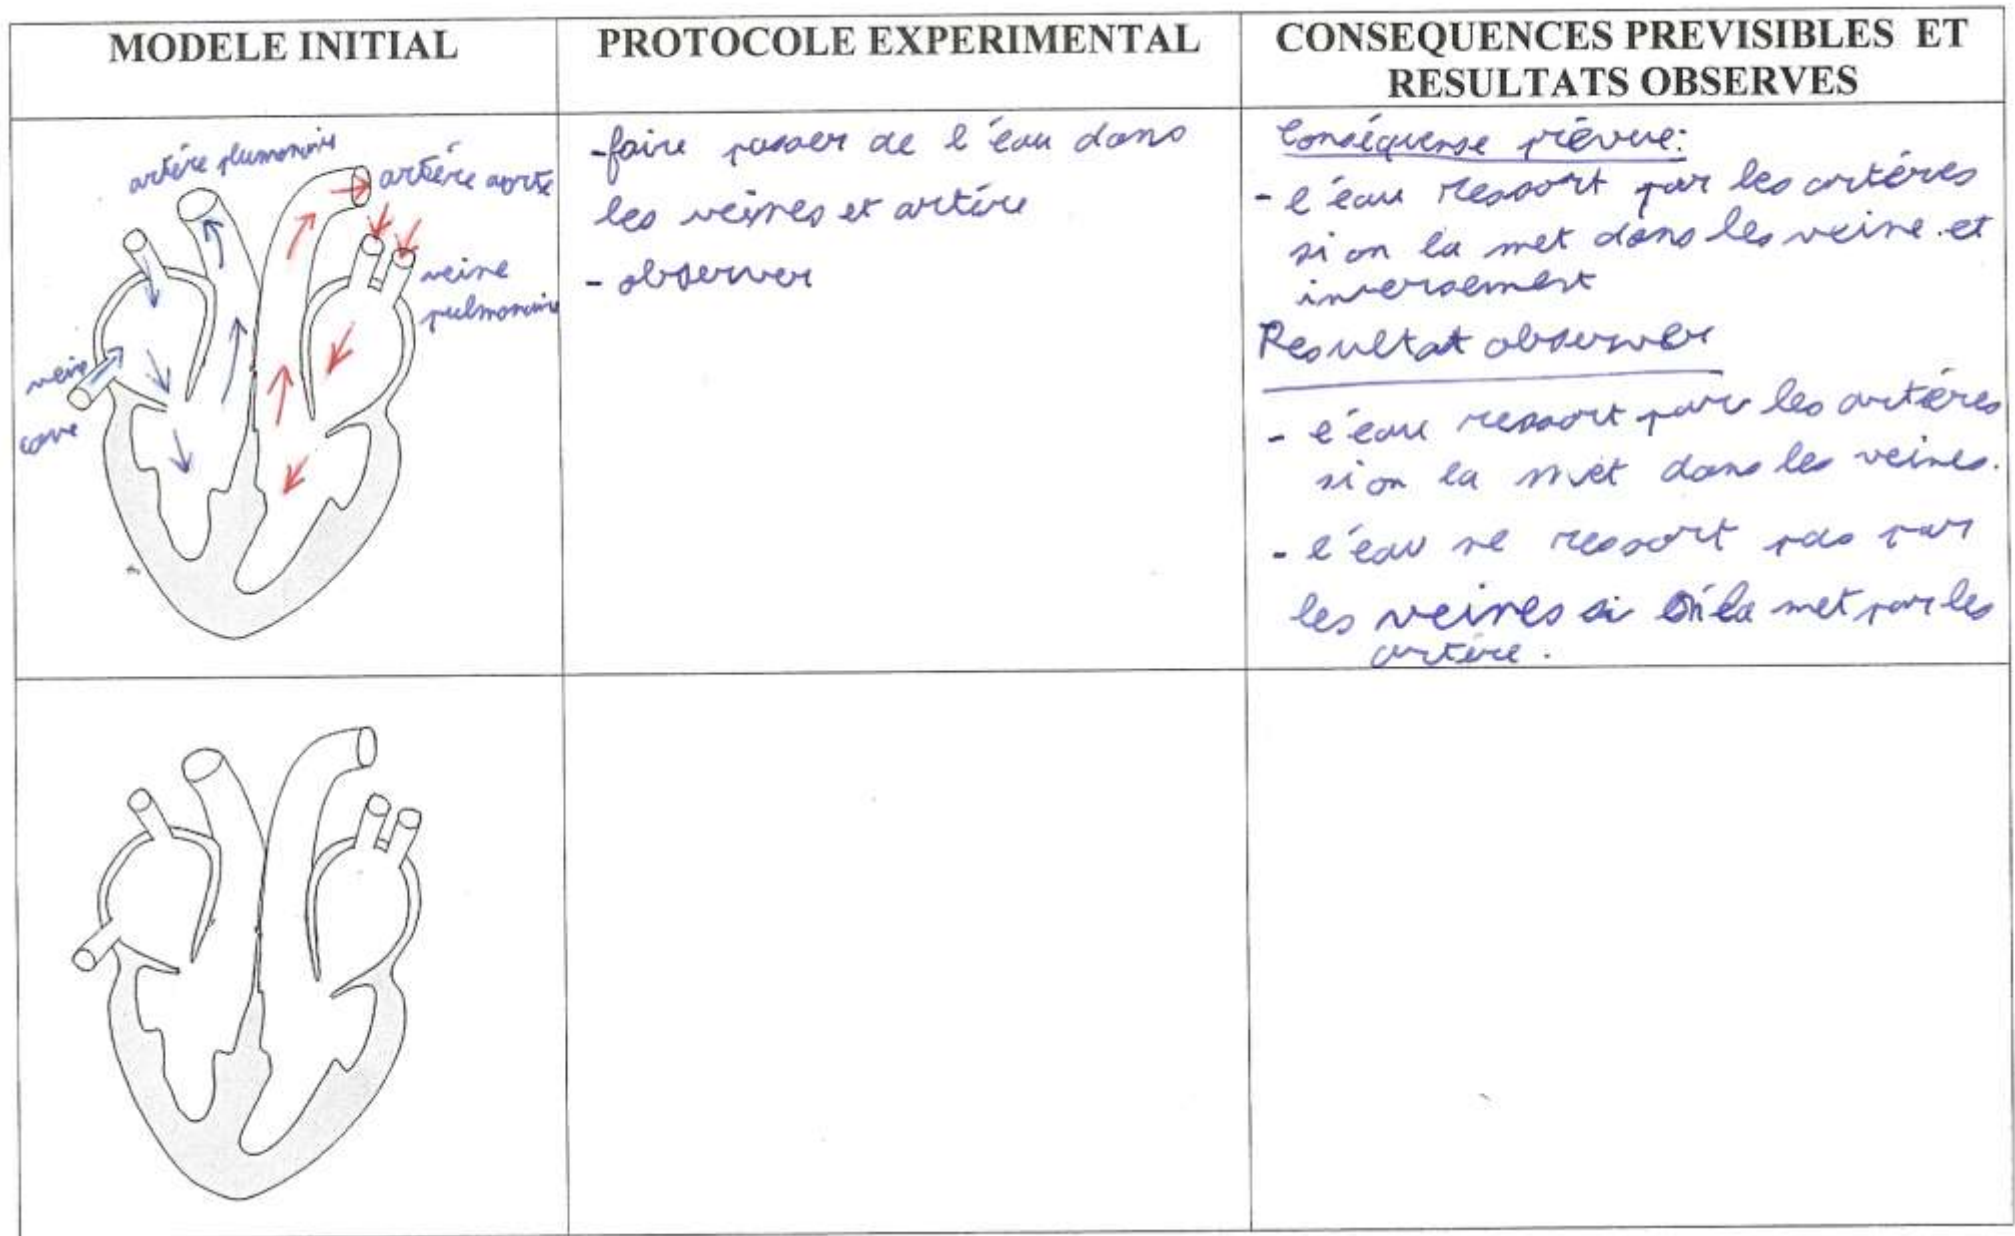 MODELE INITIAL
PROTOCOLE EXPERIMENTAL
CONSEQUENCES PREVISIBLES ET
RESULTATS OBSERVES
artère plumonaire
artère aorte
veine
pulmonaire
veine
cave
-faire passer de l'eau dans
les veines et artère
- observer
Conséquense prévue:
- l'eau ressort par les artères
si on la met dans les veine et
inversement
Resultat observer
- l'eau ressort par les artères
si on la met dans les veines.
- l'eau ne ressort pas par
les veines si on la met par les
artère.